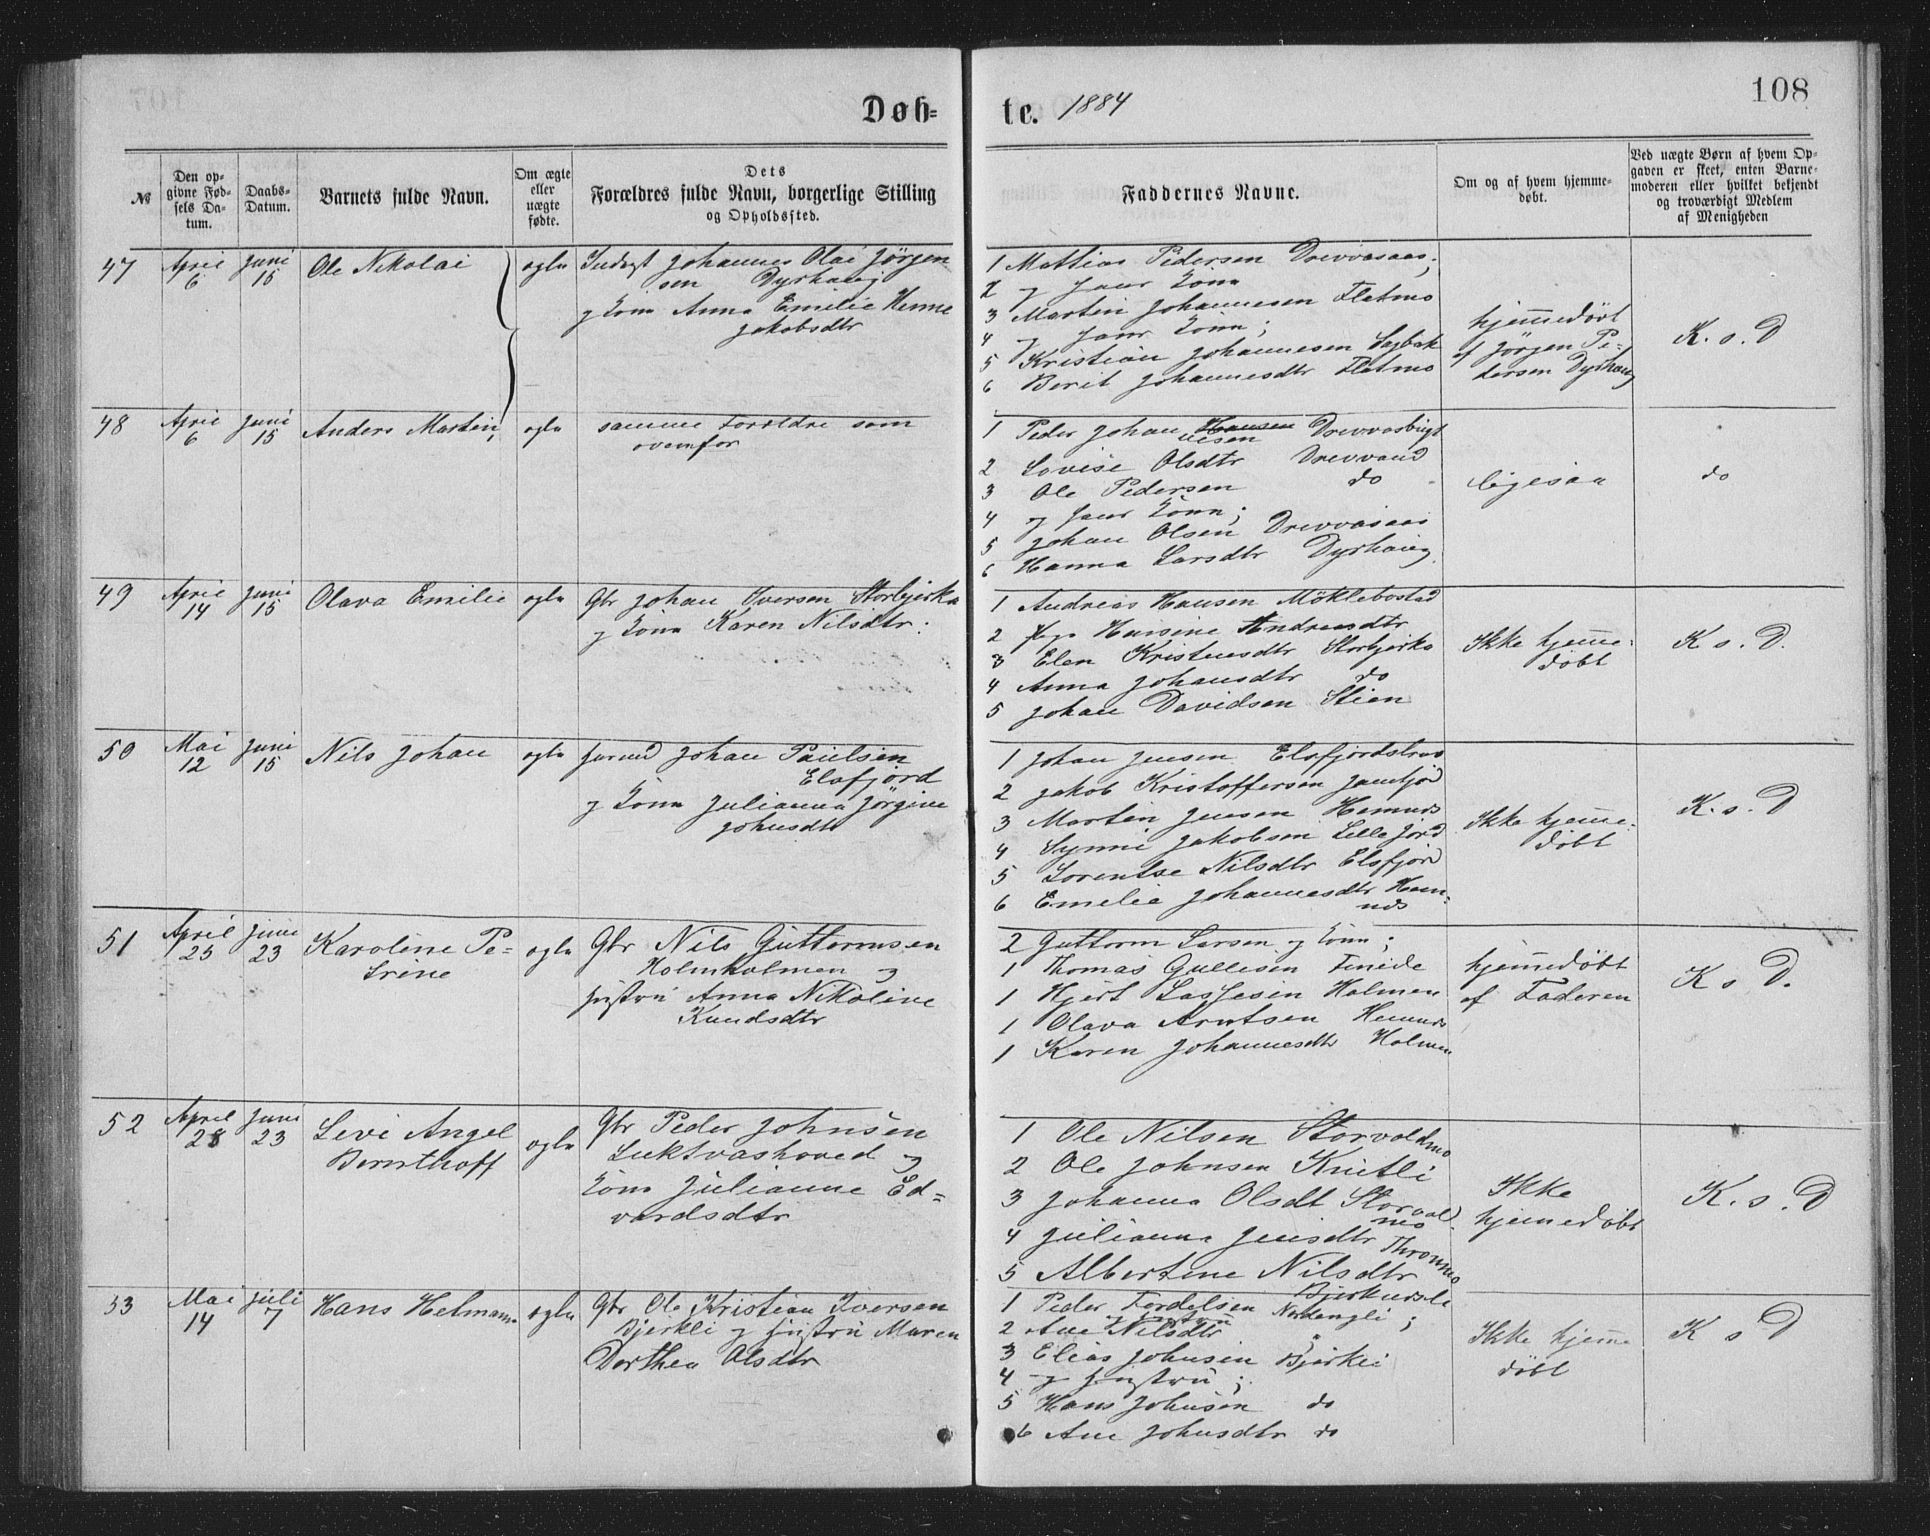 108
Døb-
te. 1884
№
Den op-
givne Fød-
sels Da-
tum.
Daabs-
Datum.
Barnets fulde Navn.
Om ægte
eller
uægte
fødte.
Dets
Forældres fulde Navn, borgerlige Stilling
og Opholdssted.
Faddernes Navne.
Om og af hvem hjemme-
døbt.
Ved uægte Børn af hvem Op-
gaven er skeet, enten Barne-
moderen eller hvilket bekjendt
og troværdigt Medlem
af Menigheden
47
April
6
Juni
15
Ole Nikolai
egte
Johannes Olai Jørgen
sen Dyrhaug
og Kona Anna Emilie Henne
Jakobsdtr
1 Mattias Pedersen Drevvasaas,
2 og hans Kona
3 Martin Johannesen Fletmo
4 og hans Kona;
5 Kristian Johannesen Sagbak
6 Berit Johannesdtr Fletmo
hjemmedøbt
af Jørgen Pe-
dersen Dyrhaug
K. s. D
48
April
6
Juni
15
Anders Martin,
egte
samme Forældre som
ovenfor
1 Peder Johan Hansen Drevvasbugt
nesen
2 Lovise Olsdtr Drevvand
3 Ole Pedersen do
4 og hans Kona;
5 Johan Olsen Drevvasaas
6 Hanna Larsdtr Dyrhaug.
ligesaa
do
49
April
14
Juni
15
Olava Emilie
egte
Gbr Johan Iversen Storbjerka
og Kona Karen Nilsdtr.
1 Andreas Hansen Möklebostad
2 Pige Hansine Andreasdtr
3 Elen Kristensdtr Storbjerka
4 Anna Johansdtr do
5 Johan Davidsen Stien
Ikke hjemme-
døbt
K s. D.
50
Mai
12
Juni
15
Nils Johan
egte
Johan Paulsen
Elsfjord
og Kona Julianna Jørgine
Johnsdtr
1 Johan Jensen Elsfjordstrand
2 Jakob Kristoffersen
3 Martin Jensen Hemnes
4 Synni Jakobsen
5 Lorentse Nilsdtr Elsfjord
6 Emelie Johannesdtr Hem-
nes
Ikke hjemme-
døbt
K. s. D
51
April
25
Juni
23
Karoline Pe-
trine
egte
Gbr Nils Guttormsen
Holmholmen og
Hustru Anna Nikoline
Knudsdtr
2 Guttorm Larsen og Kona;
1 Thomas Gullesen
1 Hjert Lassesen Holmen
1 Olava Arntsen Hemnes
1 Karen Johannesdtr Holmen
hjemmedøbt
af Faderen
K s D.
52
April
28
Juni
23
Levi Angel
Bernthoff
egte
Gbr Peder Johnsen
Luktvashoved og
Kona Julianne Ed-
vardsdtr
1 Ole Nilsen Storvoldmo
2 Ole Johnsen Knutli
3 Johanna Olsdt Storvold
mo
4 Julianna Jensdtr Thronmo
5 Albertine Nilsdtr
Ikke
hjemmedøbt
K. s. D
53
Mai
14
Juli
7
Hans Helman
egte
Gbr Ole Kristian Iversen
Bjerkli og Hustru Maren
Dorthea Olsdtr
1 Peder Fordelsen Nordengli;
og Hustru
2 Ane Nilsdtr "
3 Elias Johnsen Bjerkli
4 og Hustru;
5 Hans Johnsen do
6 Ane Johnsdtr do
Ikke hjemme
døbt
K s D